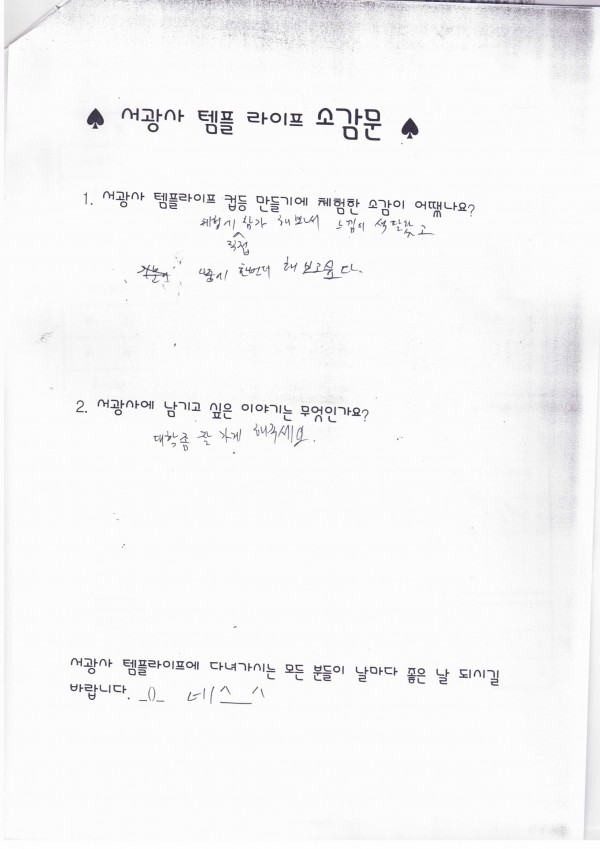 ♠ 서광사 템플 라이프 소감문 ♠
1. 서광사 템플라이프 컵등 만들기에 체험한 소감이 어땠나요?
참가 해보면서 느낌이 색달랐고
직접
한번더 해 보고싶다.
2. 서광사에 남기고 싶은 이야기는 무엇인가요?
대학좀 잘 가게 해주세요.
서광사 템플라이프에 다녀가시는 모든 분들이 날마다 좋은 날 되시길
바랍니다. _()_ 네^__^